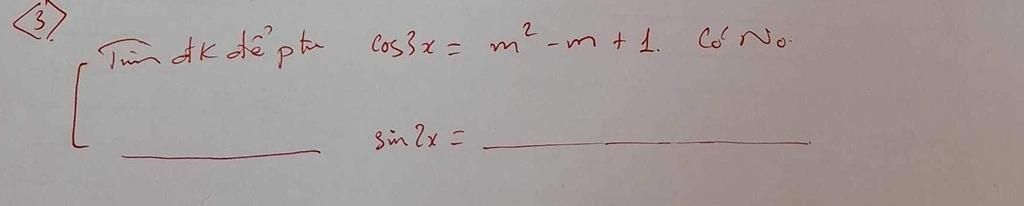 3
Tìm đk để ptr cos3x = m² - m + 1. Có No.
sin2x =